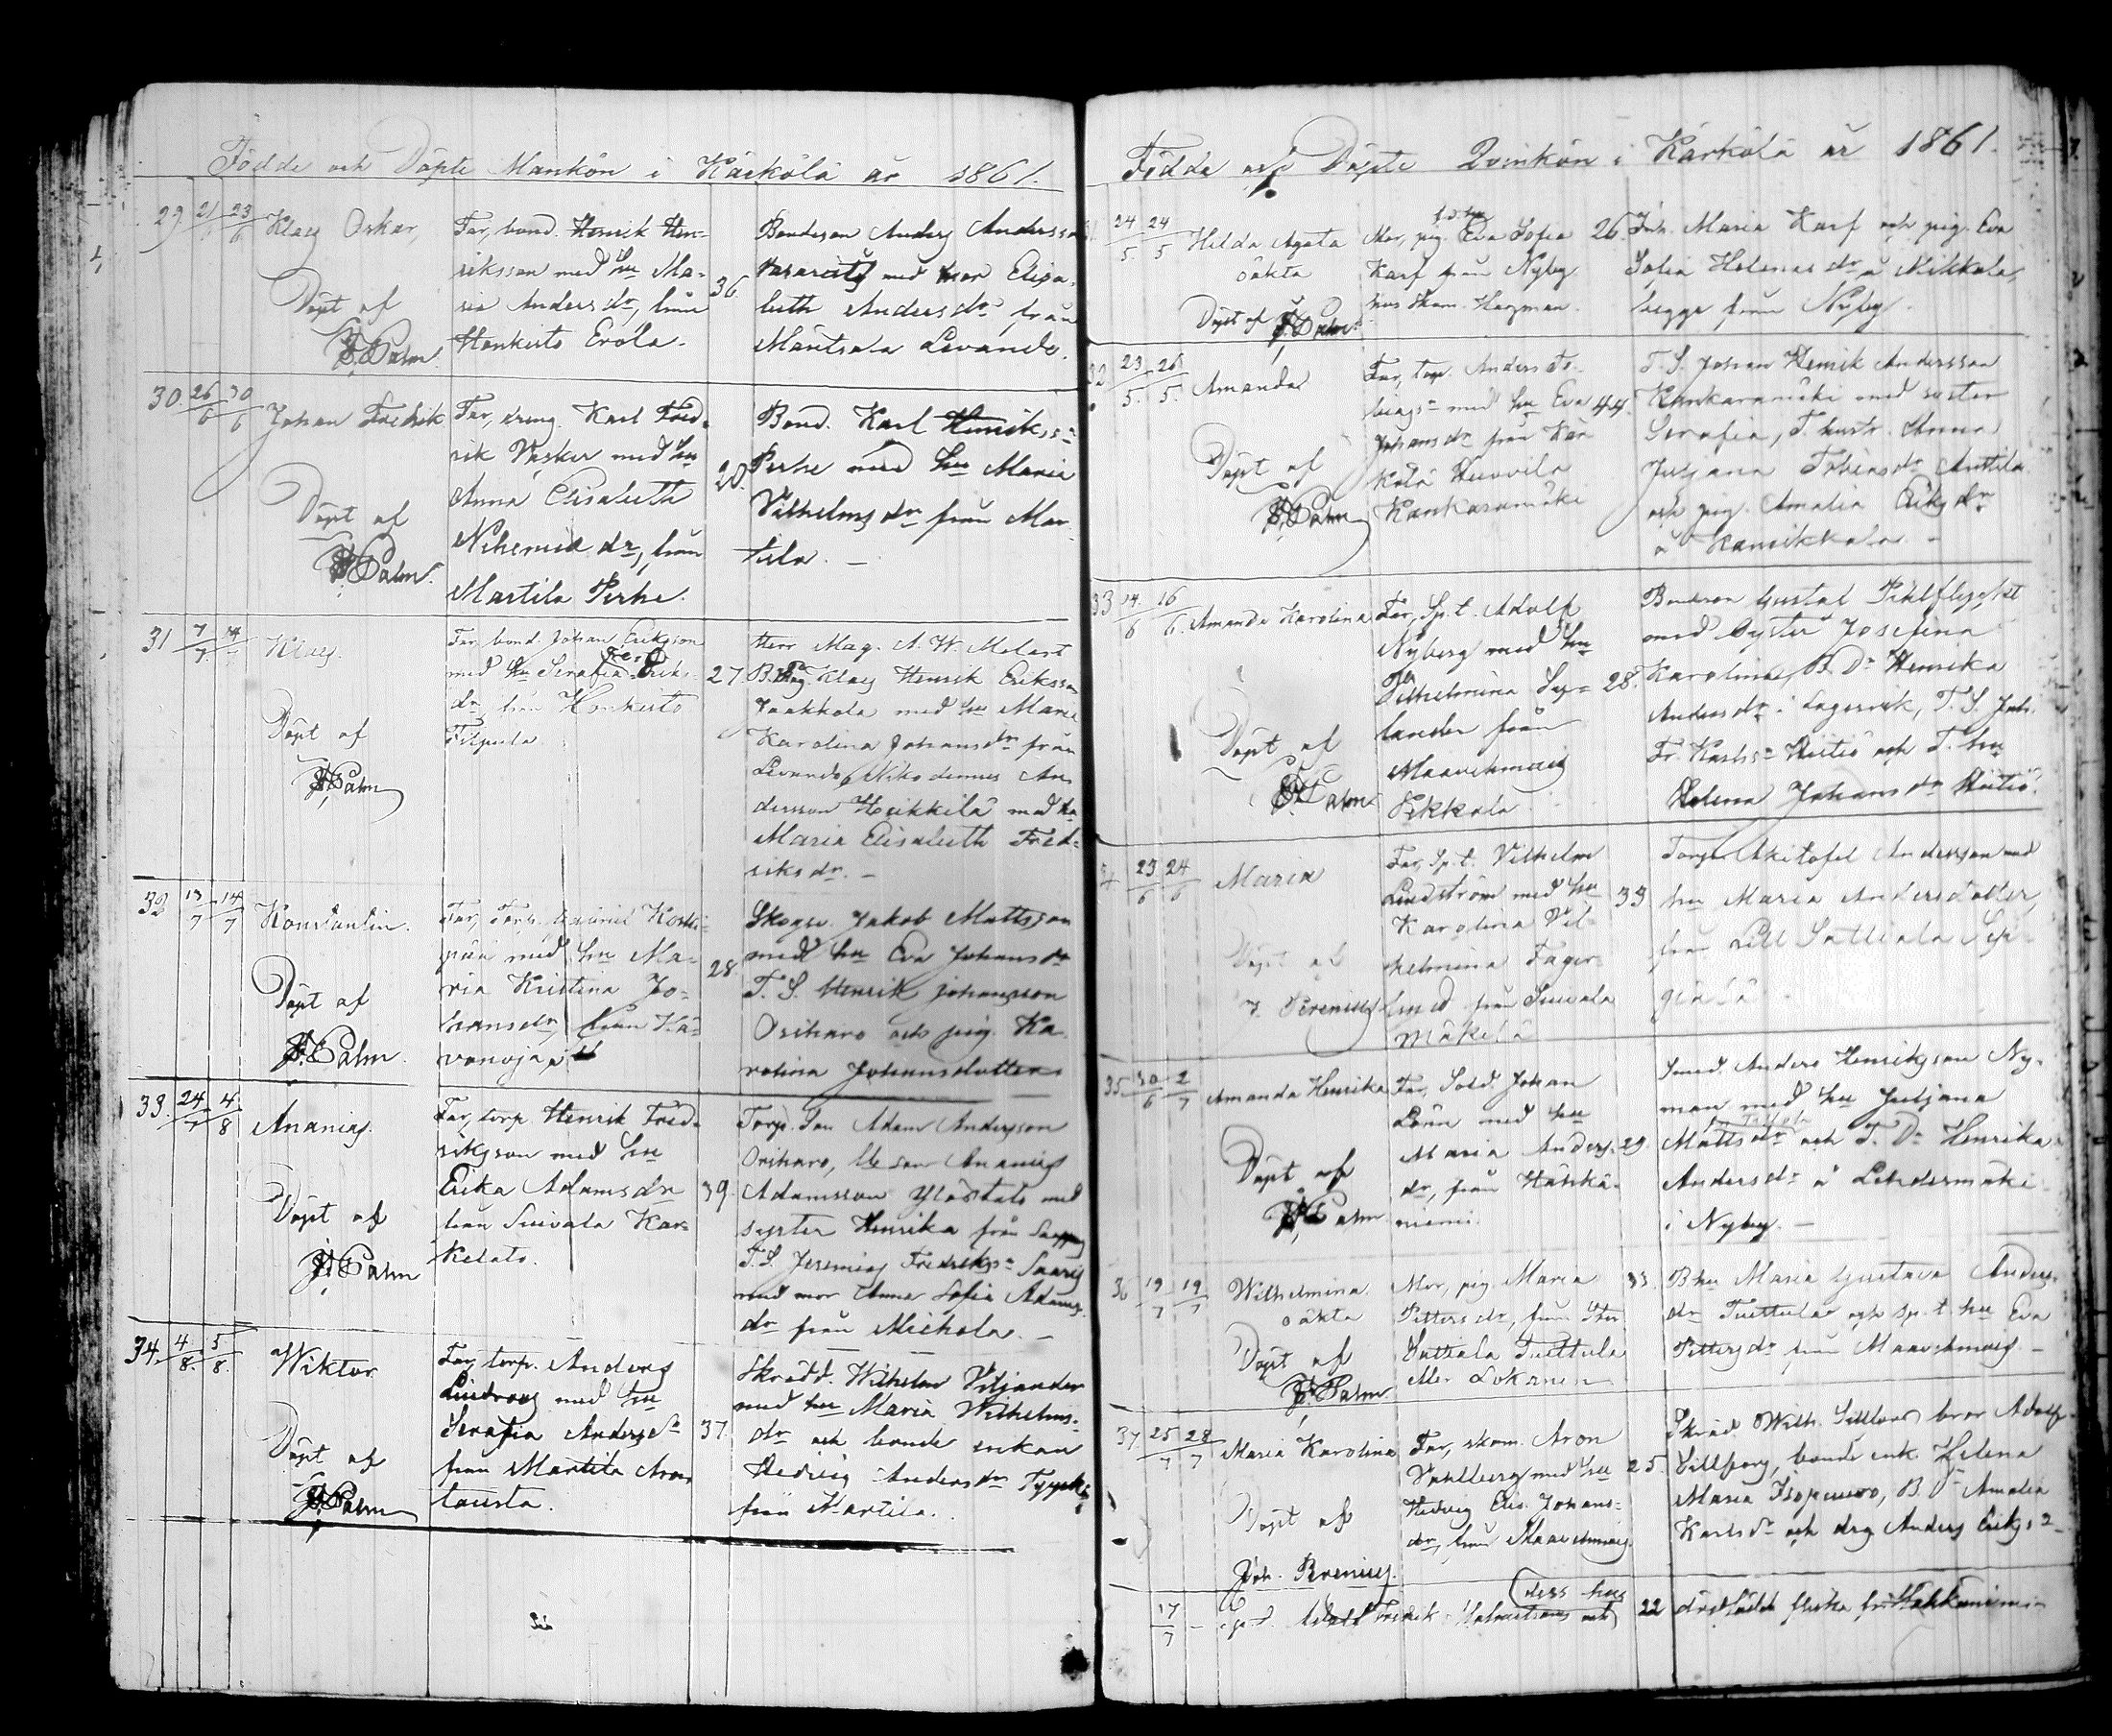 Födde och Döpte Mankön i Kärkölä år 1861.
29 21/6 23/6 Klas Oskar,
Döpt af
Palm.
Far, bond. Henrik Hen-
riksson med hu Ma-
ria Andersdr, från
Honkusto Erola.
36.
Bondeson Anders Andersson
med mor Elisa-
beth Andersdr, från
Mäntsala Levanto.
30. 26/6 30/6 Johan Fredrik
Döpt af
Palm.
Far, dreng. Karl Fred-
rik Vasker med hu
Anna Elisabeth
Nehemia dr, från
Martila Perhe.
20.
Bond. Karl Henrikssn
Perhe med hu Maria
Vilhelms dr från Mar-
tila. —
31 7/7 14/7 Klas.
Döpt af
Palm
Far bond. Johan Eriksson
med hu Serafia Fred Eriks-
dr, från Honkusto
Filpula.
27.
Herr Mag. A. W. Melart
Klas Henrik Eriksson
Jaakkola med hu Maria
Karolina Johansdr från
Levanto, Nikodemus An-
dersson Heikkilä med hu
Maria Elisabeth Fred-
riksdr. —
32 13/7 14/7 Konstantin.
Döpt af
Palm.
Far, Torp. Gabriel Koski-
pää med hu Ma-
ria Kristina Jo-
hansdr, från Hä-
vänoja
28.
Skogv. Jakob Mattsson
med hu Eva Johansdr
T. S. Henrik Johansson
Oriharo och pig. Ka-
rolina Johansdotter
33. 24/7 4/8 Ananias.
Döpt af
Palm
Far, torp. Henrik Fred-
riksson med hu
Erika Adamsdr
från Suivala Kar-
kelato.
39.
Torp. Son Adam Andersson
Oriharo, son Ananias
Adamsson Ylöstalo med
syster Henrika från
T. S. Jeremias Fredrikssn Saaris
med mor Anna Sofia Adams-
dr från Miekola. —
34. 4/8. 5/8. Wiktor
Döpt af
Palm
Far, torp. Anders
Lindroos med hu
Serafia Andersdr
från Martila Aron-
tausta.
37.
Skrädd. Wilhelm Viljander
med hu Maria Wilhelms-
dr och bonde enkan
Hedvig Andersdr Tyyskä
från Martila.
Födda och Döpte Qvinkön i Kärkölä år 1861.
24/5. 24/5 Hilda Agata
oäkta
Döpt af Palm.
Mor, pig. Eva Sofia
Karf från Nyby
hos skom. Hagman.
26.
Inh. Maria Karf och pig. Eva
Sofia Helenas dr å Mikkola,
begge från Nyby.
32 23/5. 26/5. Amanda
Döpt af
Palm
Far, torp. Anders To-
biassn med hu Eva
Johansdr från Kär-
kölä Huovila
Kankaramäki
44.
T. S. Johan Henrik Andersson
Kankaramäki med syster
Serafia, T. hustr. Anna
Juljana Tobiasdr Anttila
och pig. Amalia Eriksdr
å Kansikkala. —
33 14/6 16/6. Amanda Karolina
Döpt af
Palm.
Far, Spt. Adolf
Nyberg med hu
Vilhelmina Sep-
lander från
Maavehmais
Pekkala
28.
Bondeson Gustaf Pihlflyckt
med syster Josefina
Karolina, B. Dr Henrika
Andersdr i Lagervik, T. S. Joh.
Fr. Karlssn Hietiö och T. hu
Helena Johansdr Hietiö.
23/6 24/6 Maria
Döpt af
J. Perenius
Far, Spt. Vilhelm
Lindström med hu
Karolina Vil-
helmina Fager-
lund från Suivala
Mäkelä
33
Torpar Akitofel Andersson med
hu Maria Andersdotter,
från Lill Sattiala Sep-
35. 30/6 2/7 Amanda Henrika
Döpt af
Palm
Far, Sold. Johan
Lönn med hu
Maria Anders-
dr, från Hähkä-
niemi.
29.
Smed. Anders Henriksson Ny-
man med hu Juljana
Mattsdr och T. Dr Henrika
Andersdr å Lehdesmäki
i Nyby. —
36 19/7 19/7 Wilhelmina
oäkta
Döpt af
Palm.
Mor, pig. Maria
Pettersdr, från Stor
Sattiala Tuettula
eller Lokanen
33.
Bhu Maria Gustava Anders-
dr Tuettula och Spt hu Eva
Pettersdr från Maavehmais. —
37. 25/7 28/7 Maria Karolina
Döpt af
Joh. Perenius.
Far, skom. Aron
Vahlberg med hu
Hedvig Elis. Johans-
dr, från Maavehmais.
25.
Skräd. Wilh. Sillfors bror Adolf
Sillfors, bonde enk. Helena
Maria Isopuuro, B. Dr Amalia
Karlsdr och drg Anders Erikssn
17/7 — Spt. Adolf Fredrik Holmström och dess hus
22 dödfödd flicka fr Hähkäniemi